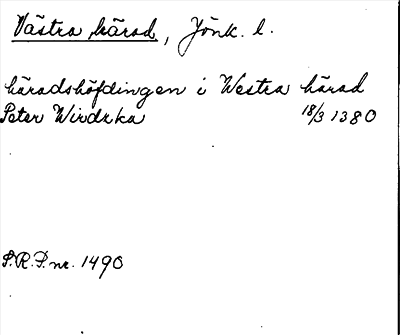 Västra härad, Jönk. l.
häradshöfdingen i Westra härad
Peter Wirdrka 18/3 1380
S.R.P. nr. 1490